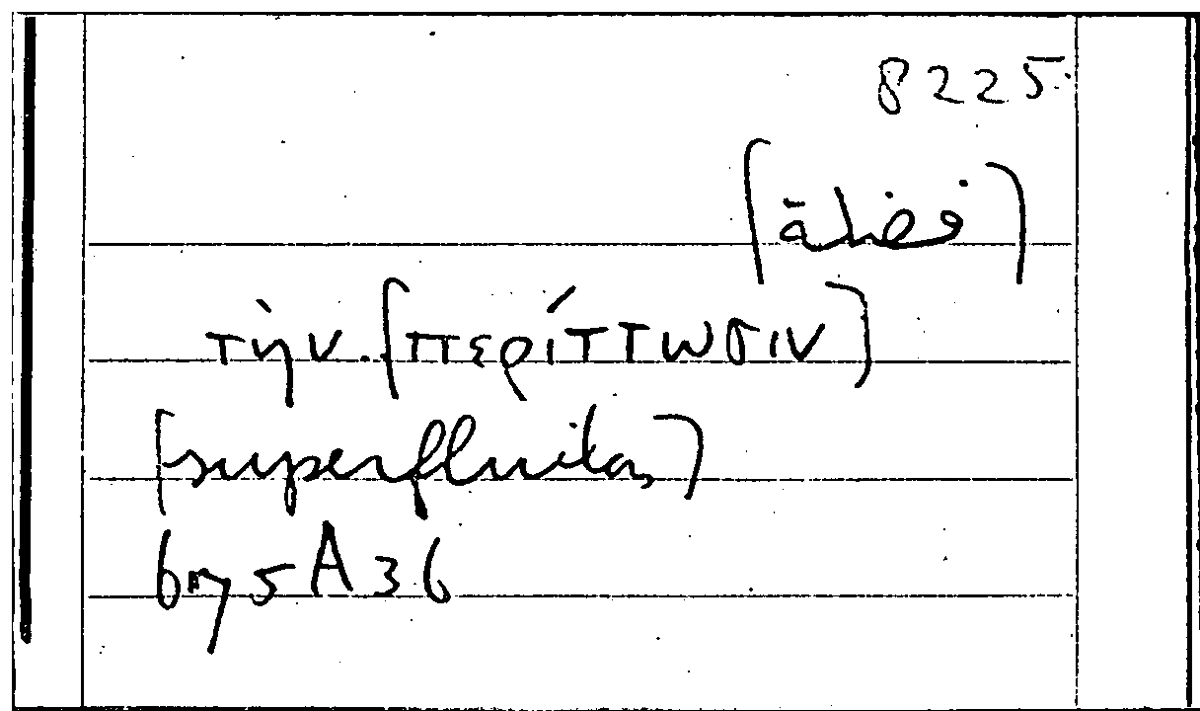 8225
[فضلة]
τὴν [περίττωσιν]
[superfluitas]
675A36